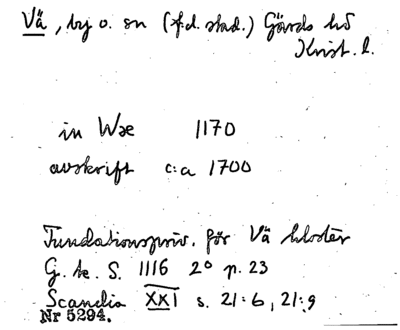 Vä, by o. sn (f.d. stad.) Gärds hd
Krist. l.
in Wæ 1170
avskrift c:a 1700
Fundationspriv. för Vä kloster
G. k. S. 1116 2º p. 23
Scandia XXI s. 21:6, 21:9
Nr 5294.